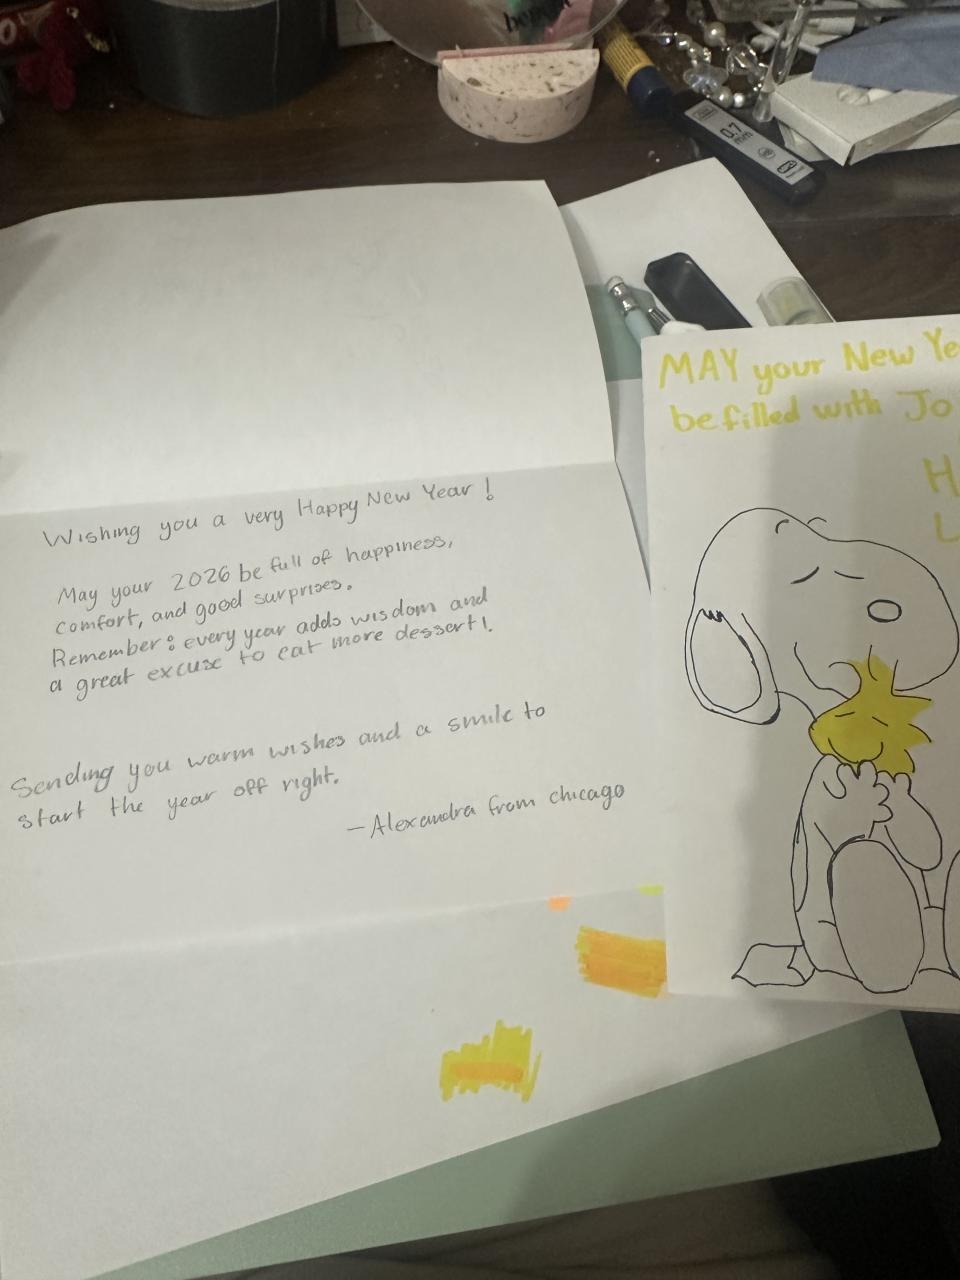 0.7
mm
Wishing you a very Happy New Year!
May your 2026 be full of happiness,
comfort, and good surprises.
Remember: every year adds wisdom and
a great excuse to eat more dessert!.
Sending you warm wishes and a smile to
start the year off right.
—Alexandra from chicago
MAY your New Ye
be filled with Jo
H
L